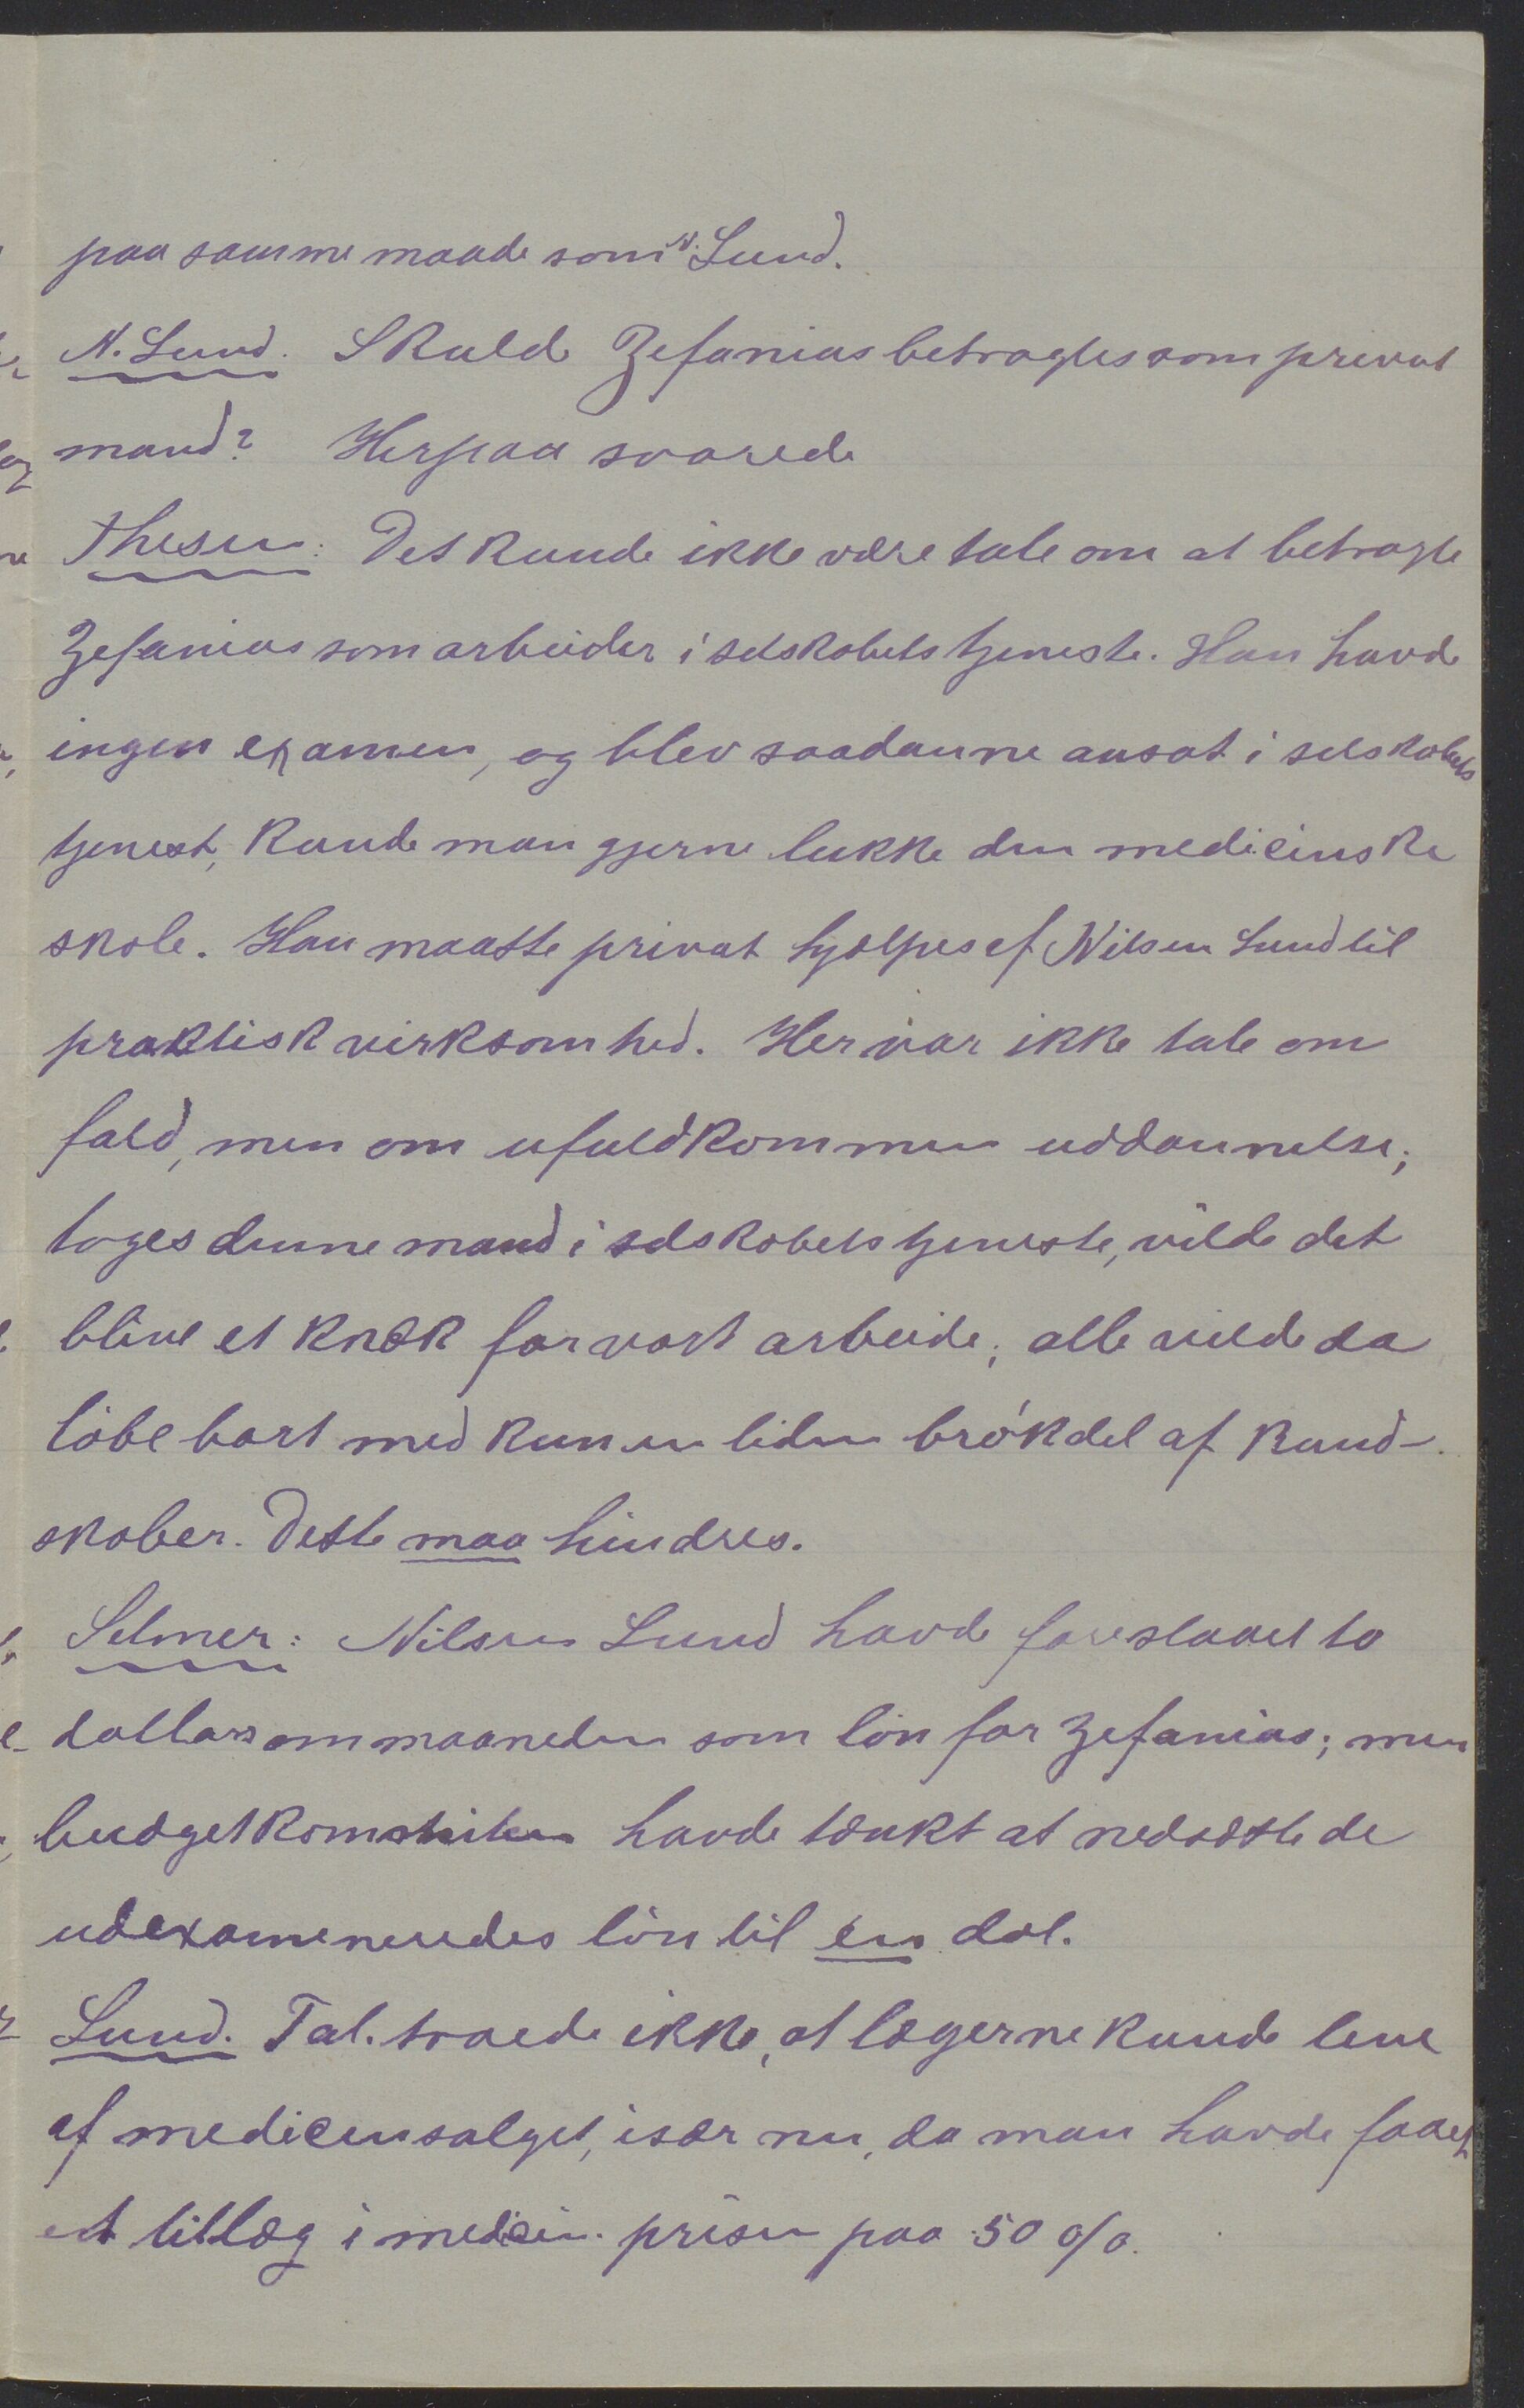 paa samme maade som N. Lund.
N. Lund. Skulde Zefanias betragtes som privat
mand? Herpaa svarede
Thesen: Det kunde ikke være tale om at betragte
Zefanias som arbeider i selskabets tjeneste. Han havde
ingen examen, og blev saadanne ansat i selskabets
tjenest, kunde man gjerne lukke den medicinske
skole. Han maatte privat hjælpes af Nilsen Lund til
praktisk virksomhed. Her var ikke tale om
fald, men om ufuldkommen uddannelse;
toges denne mand i selskabets tjeneste, vilde det
blive et knæk for vort arbeide; alle vilde da
löbe bort med kun en liden brökdel af kund-
skaber. Dette maa hindres.
Selmer: Nilsen Lund havde foreslaaet to
dollars om maaneden som lön for Zefanias; men
budgetkomiteen havde tænkt at nedsætte de
udexamineredes lön til én dol.
Lund. Tal. troede ikke, at lægerne kunde leve
af medicinsalget, især nu, da man havde faaet
et tillæg i medicin. prisen paa 50 o/o.